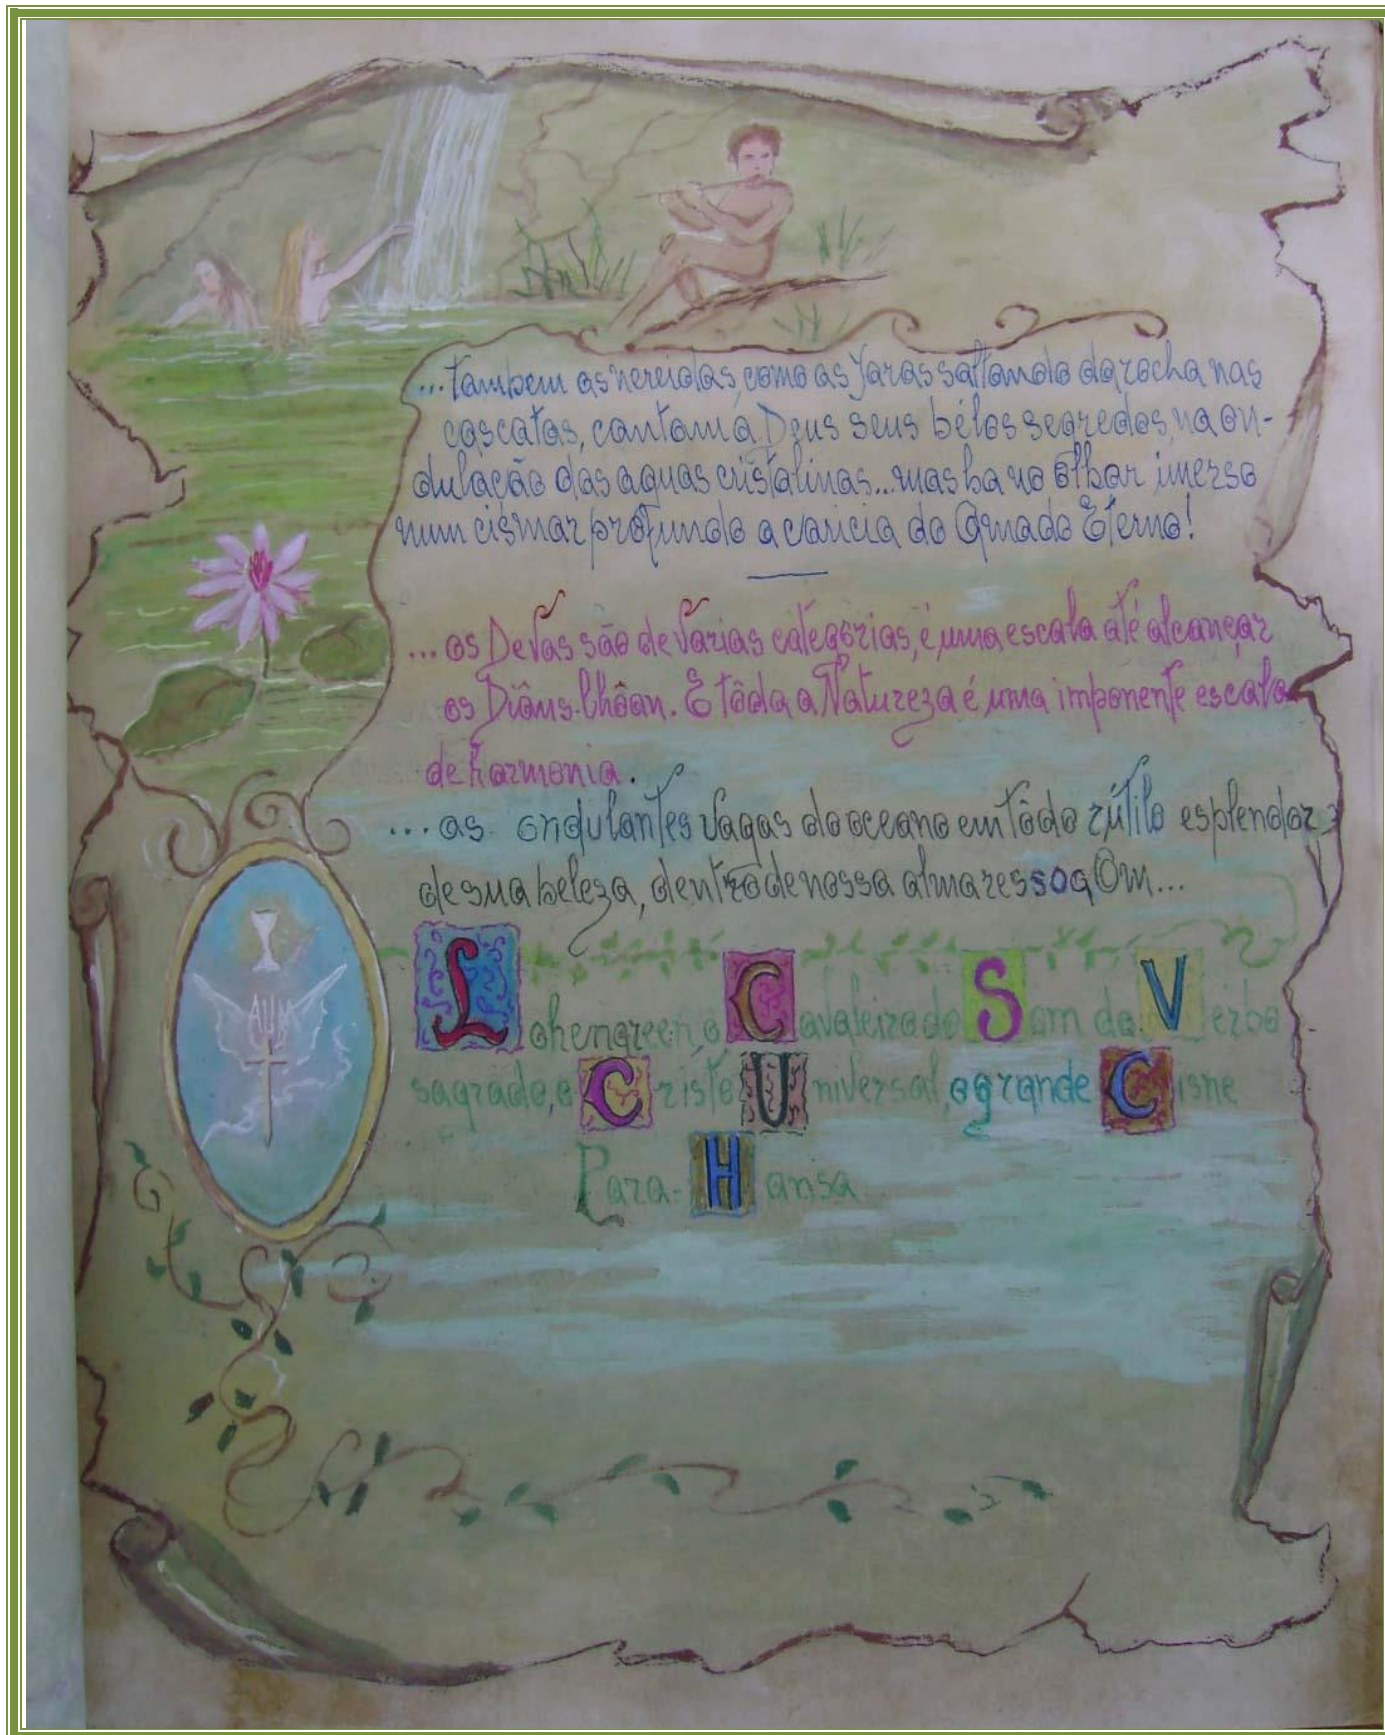 ...tambem as nereidas, como as Yaras saltando da rocha nas
cascatas, cantam á Deus seus bélos segredos, na on-
dulação das aguas cristalinas...mas ha no olhar imerso
num cismar profundo a caricia do Amado Eterno!
...os Devas são de varias categorias, é uma escala até alcançar
os Diâns-Chôan. E tôda a Natureza é uma imponente escala
de harmonia.
...as ondulantes vagas do oceano em tôdo rútilo esplendor
de sua beleza, dentro de nossa alma ressoa Om...
AUM
Lohengreen, o Cavaleiro do Som do Verbo
sagrado, o Cristo Universal, o grande Cisne
Para-Hansa